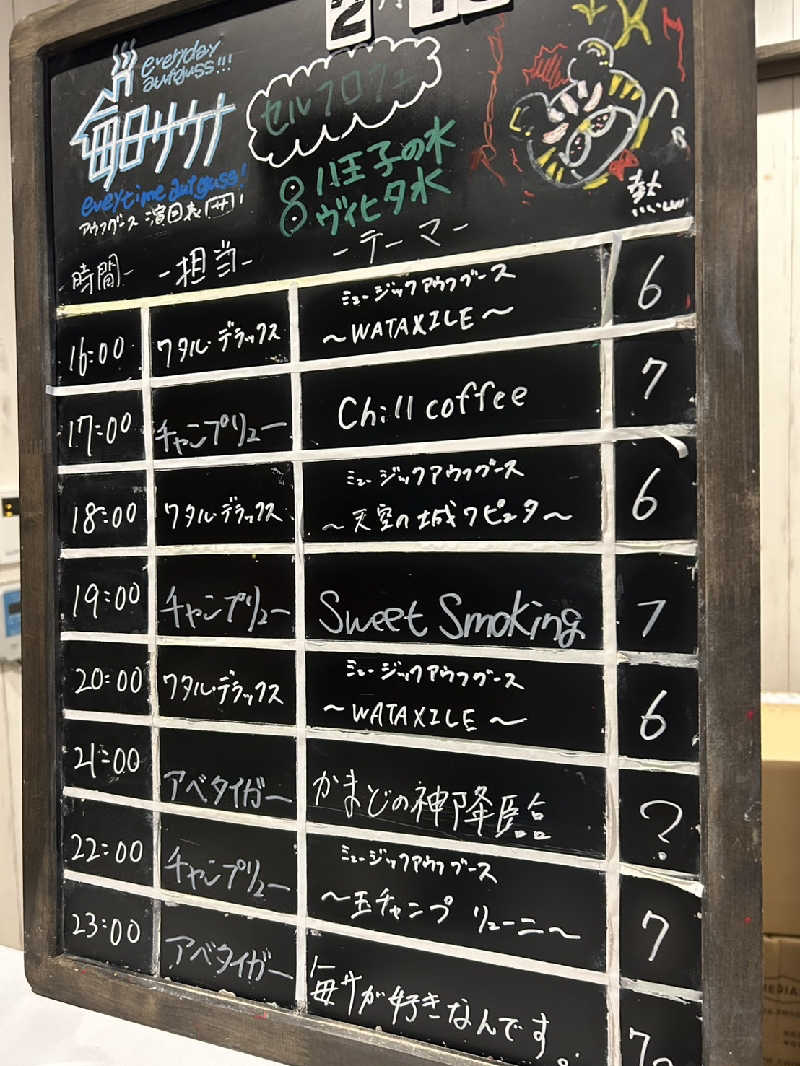 2月
everyday
aufguss!!!
毎日サウナ
everytime aufguss!
アウフグース 演目表
セルフロウリュ
8 八王子の水
ヴィヒタ水
熱
-時間- -担当- -テーマ-
16:00 ワタル・デラックス ミュージックアウフグース 6
～WATAXILE～
17:00 チャンプリュー Chill coffee 7
18:00 ワタル・デラックス ミュージックアウフグース 6
～天空の城ワピュタ～
19:00 チャンプリュー Sweet Smoking 7
20:00 ワタル・デラックス ミュージックアウフグース 6
～WATAXILE～
21:00 アベタイガー かまどの神降臨 ?
22:00 チャンプリュー ミュージックアウフグース 7
～玉チャンプ リューニ～
23:00 アベタイガー 毎サが好きなんです。